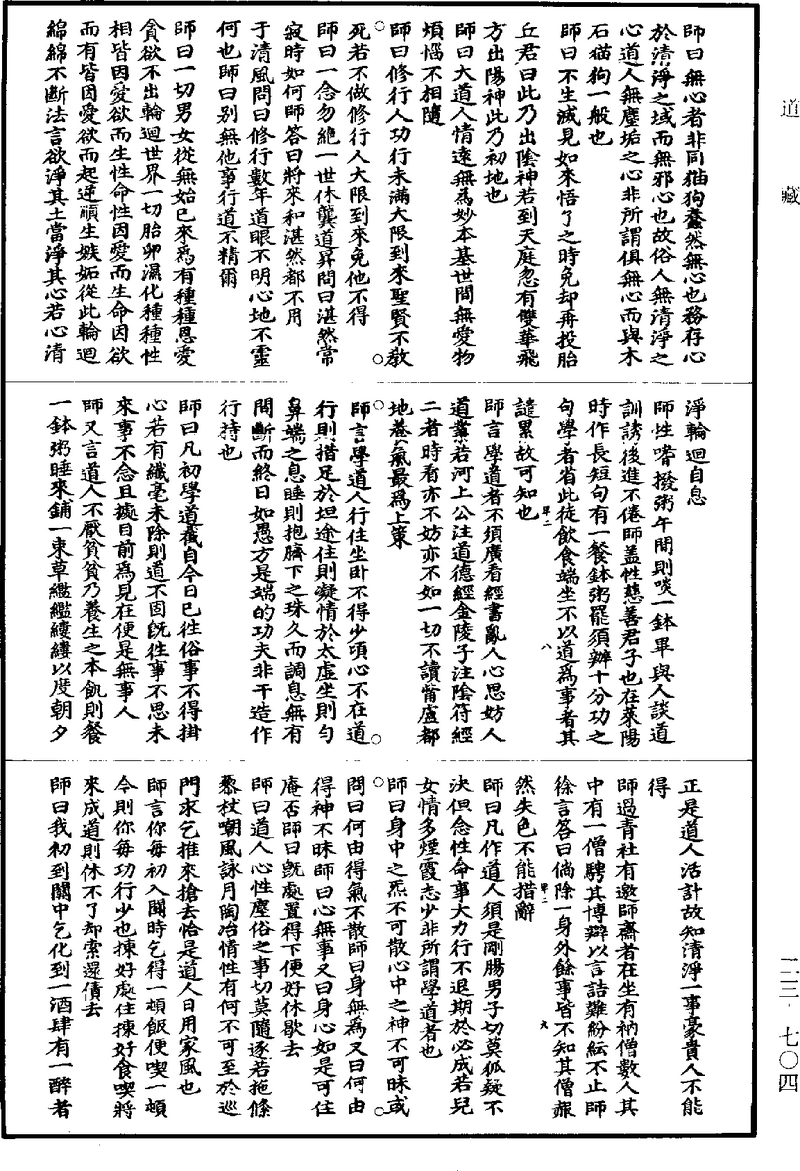 道藏
師曰無心者非同猫狗蠢然無心也務存心
於清淨之域而無邪心也故俗人無清淨之
心道人無塵垢之心非所謂俱無心而與木
石猫狗一般也
師曰不生滅見如來悟了之時免却再投胎
丘君曰此乃出陰神若到天庭忽有雙華飛
方出陽神此乃初地也
師曰大道人情遠無為妙本基世間無愛物
煩惱不相隨
師曰修行人功行未滿大限到來聖賢不教
死若不做修行人大限到來免他不得
師曰一念勿絕一世休龔道昇問曰湛然常
寂時如何師答曰將來和湛然都不用
于清風問曰修行數年道眼不明心地不靈
何也師曰別無他事行道不精爾
師曰一切男女從無始已來為有種種恩愛
貪欲不出輪迴世界一切胎卵濕化種種性
相皆因愛欲而生性命性因愛而生命因欲
而有皆因愛欲而起逆順生嫉妬從此輪迴
綿綿不斷法言欲淨其土當淨其心若心清
淨輪迴自息
師性嗜撥粥午間則啖一鉢畢與人談道
訓誘後進不倦師盖性慈善君子也在萊陽
時作長短句有一餐鉢粥罷須辦十分功之
句學者省此徒飲食端坐不以道為事者其
譴累故可知也
師言學道者不須廣看經書亂人心思妨人
道業若河上公注道德經金陵子注陰符經
二者時看亦不妨亦不如一切不讀觜盧都
地養氣最為上策
師言學道人行住坐卧不得少頃心不在道
行則措足於坦途住則凝情於太虛坐則勻
鼻端之息睡則抱臍下之珠久而調息無有
間斷而終日如愚方是端的功夫非干造作
行持也
師曰凡初學道截自今日已往俗事不得掛
心若有纖毫未除則道不固既往事不思未
來事不念且據目前為見在便是無事人
師又言道人不厭貧貧乃養生之本飢則餐
一鉢粥睡來鋪一束草繿繿縷縷以度朝夕
正是道人活計故知清淨一事豪貴人不能
得
師過青社有邀師齋者在坐有衲僧數人其
中有一僧騁其博辯以言詰難紛紜不止師
徐言答曰倘除一身外餘事皆不知其僧赧
然失色不能措辭
師曰凡作道人須是剛腸男子切莫狐疑不
決但念性命事大力行不退期於必成若兒
女情多煙霞志少非所謂學道者也
師曰身中之炁不可散心中之神不可昧或
問曰何由得氣不散師曰身無為又曰何由
得神不昧師曰心無事又曰身心如是可住
庵否師曰既處置得下便好休歇去
師曰道人心性塵俗之事切莫隨逐若拖絛
藜杖嘲風詠月陶冶情性有何不可至於巡
門求乞推來搶去恰是道人日用家風也
師言你每初入關時乞得一頓飯便喫一頓
今則你每功行少也揀好處住揀好食喫將
來成道則休不了却索還債去
師曰我初到關中乞化到一酒肆有一醉者
二三·七〇四